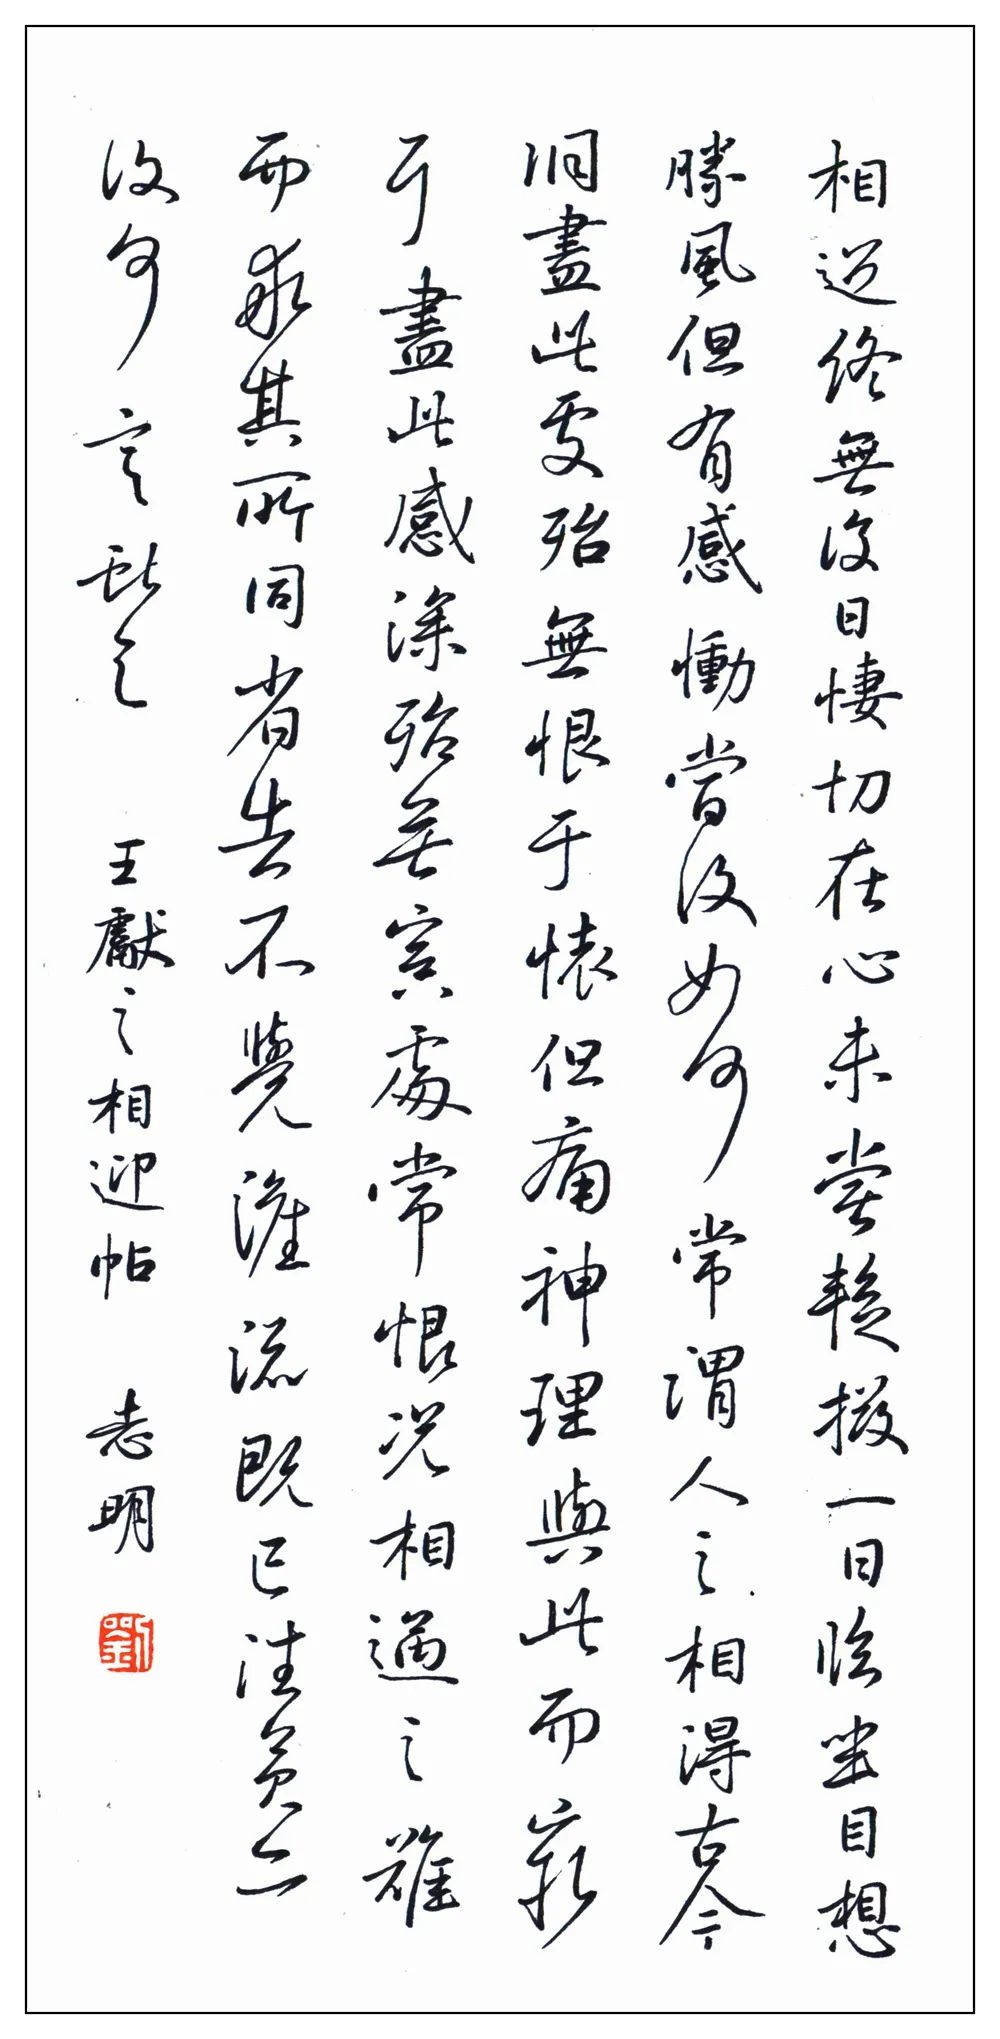 相迎終無復日悽切在心未嘗蹔掇一日臨坐目想
勝風但有感慟當復如何常謂人之相得古今
洞盡此處殆無恨于懷但痛神理與此而窮
耳盡此感深殆無冥處常恨况相遇之難
而乖其所同省告不覺流既已往矣亦
復何言獻之 王獻之相迎帖 志明
劉